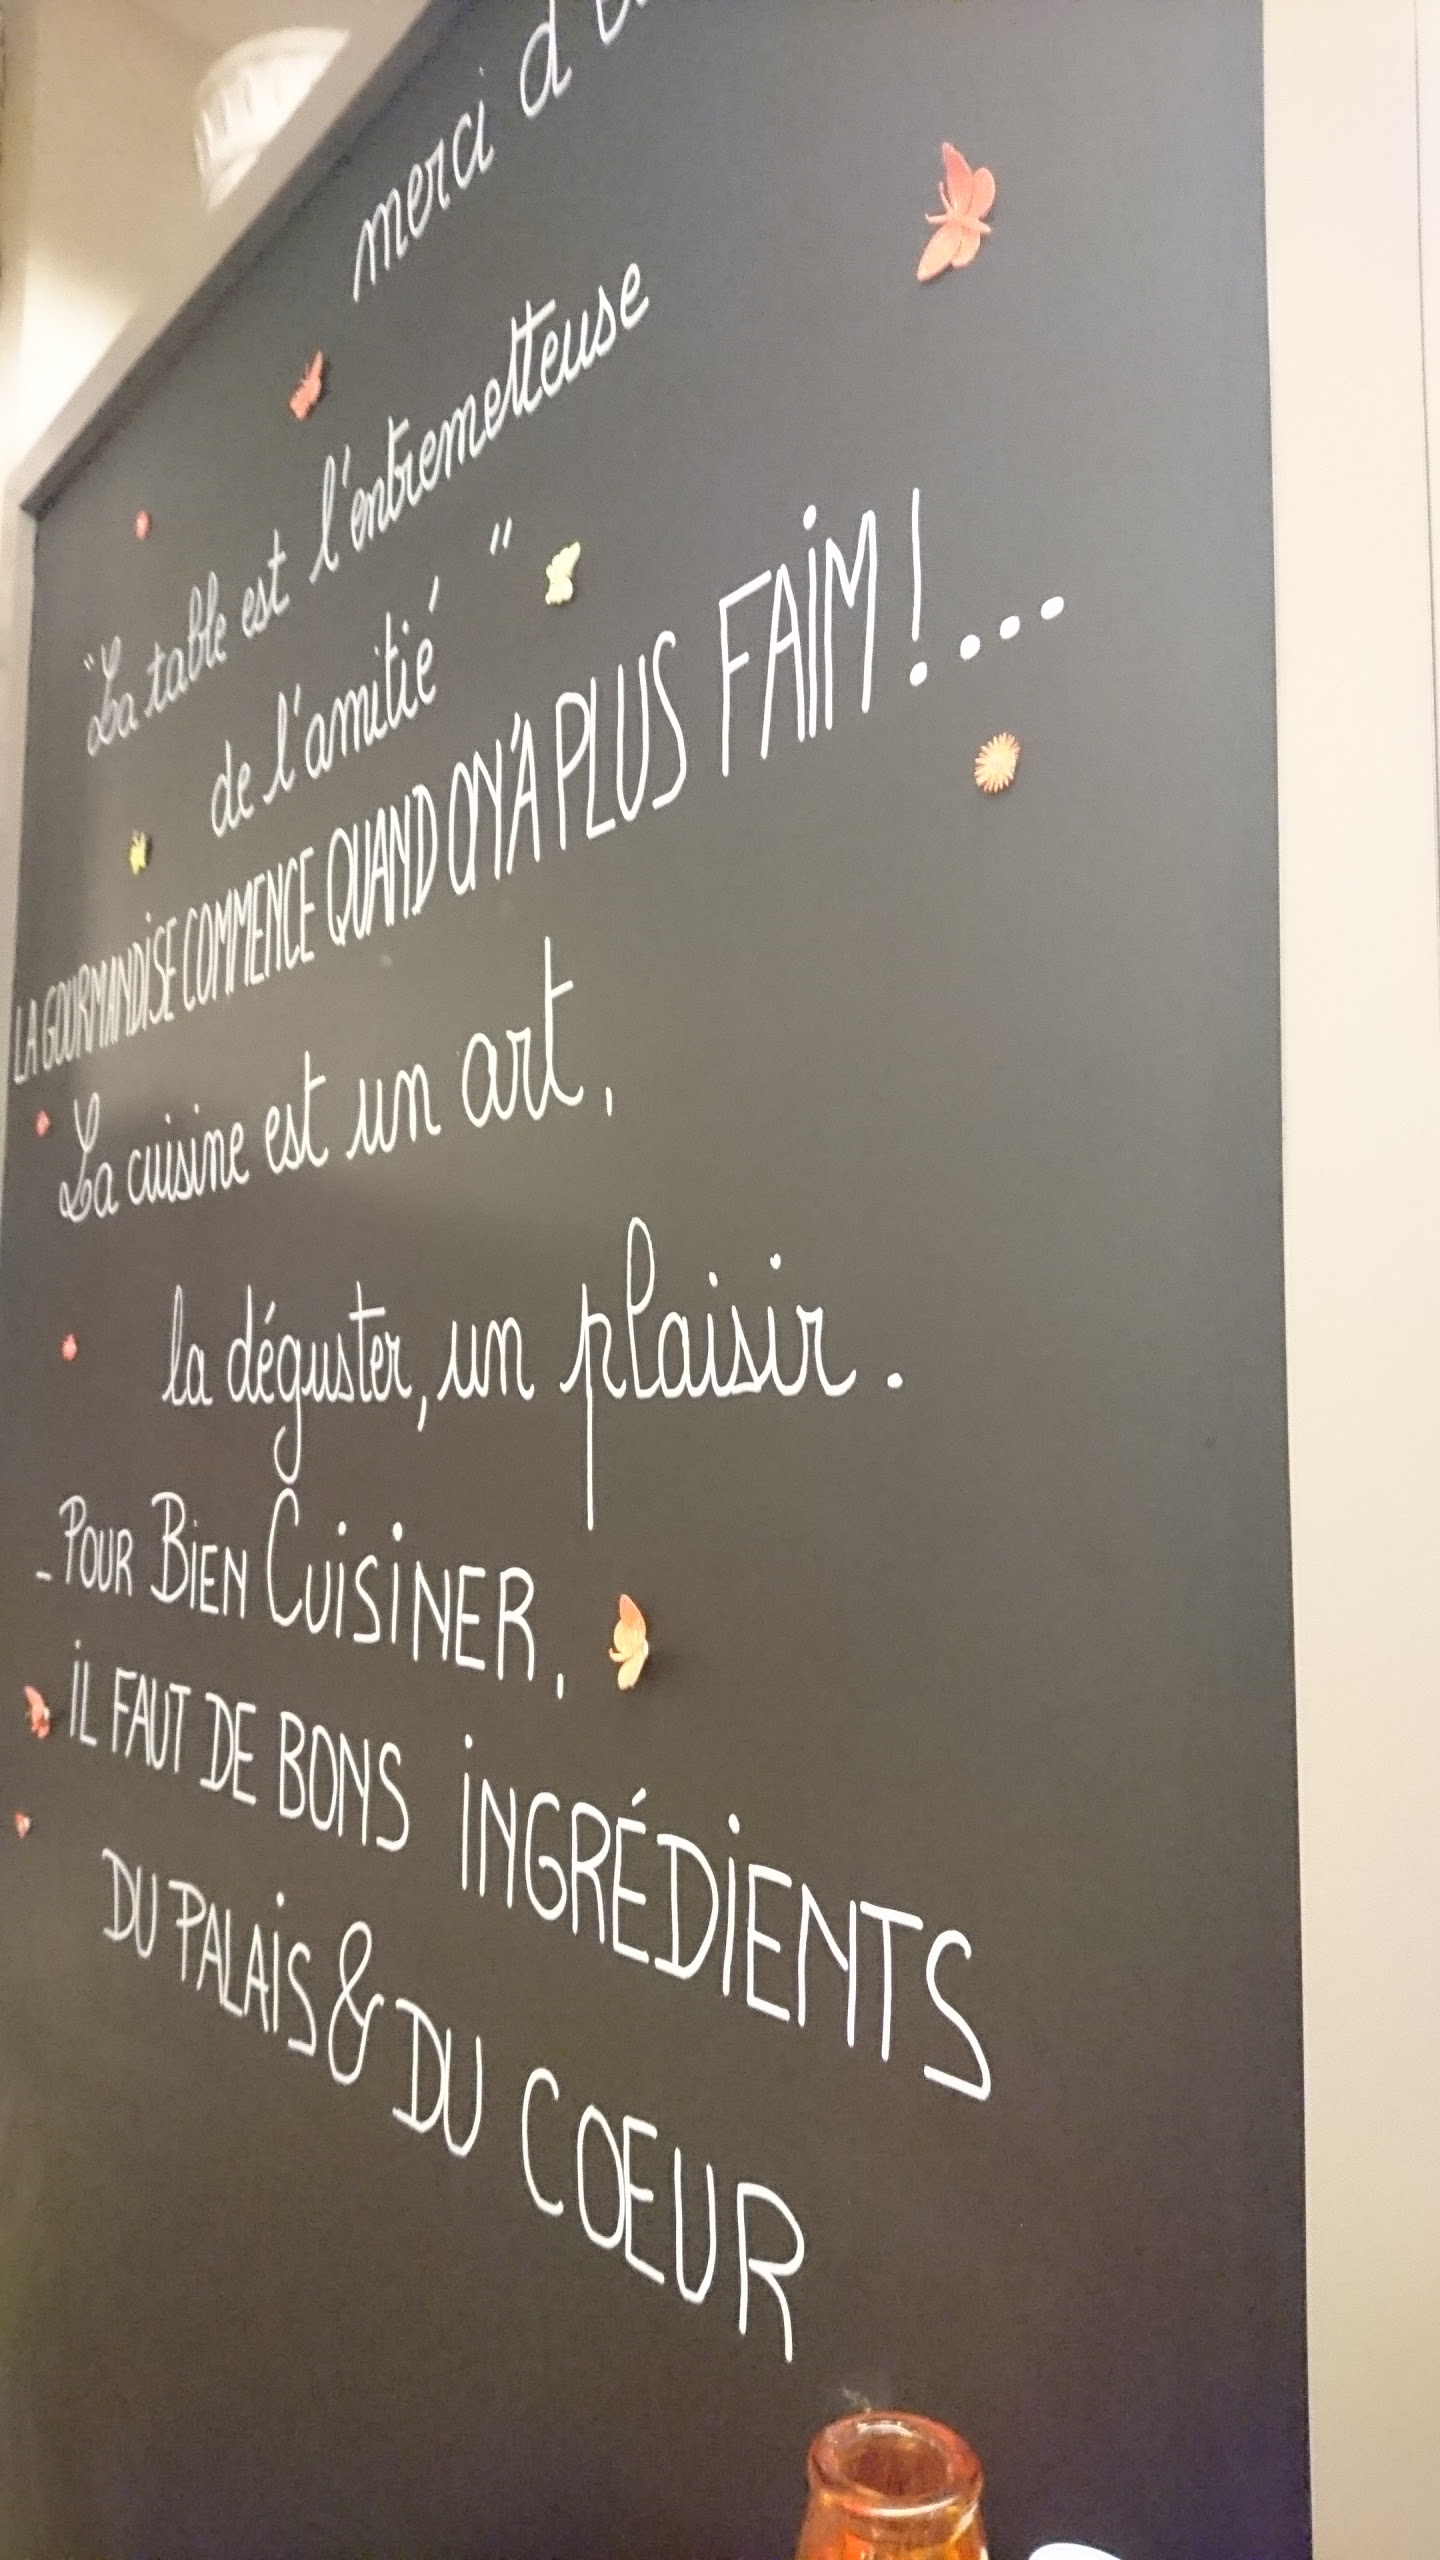 merci d'
"La table est l'entremetteuse
de l'amitié"
LA GOURMANDISE COMMENCE QUAND ON Y'A PLUS FAIM !...
La cuisine est un art,
la déguster, un plaisir.
- POUR BIEN CUISINER,
IL FAUT DE BONS INGRÉDIENTS
DU PALAIS & DU COEUR